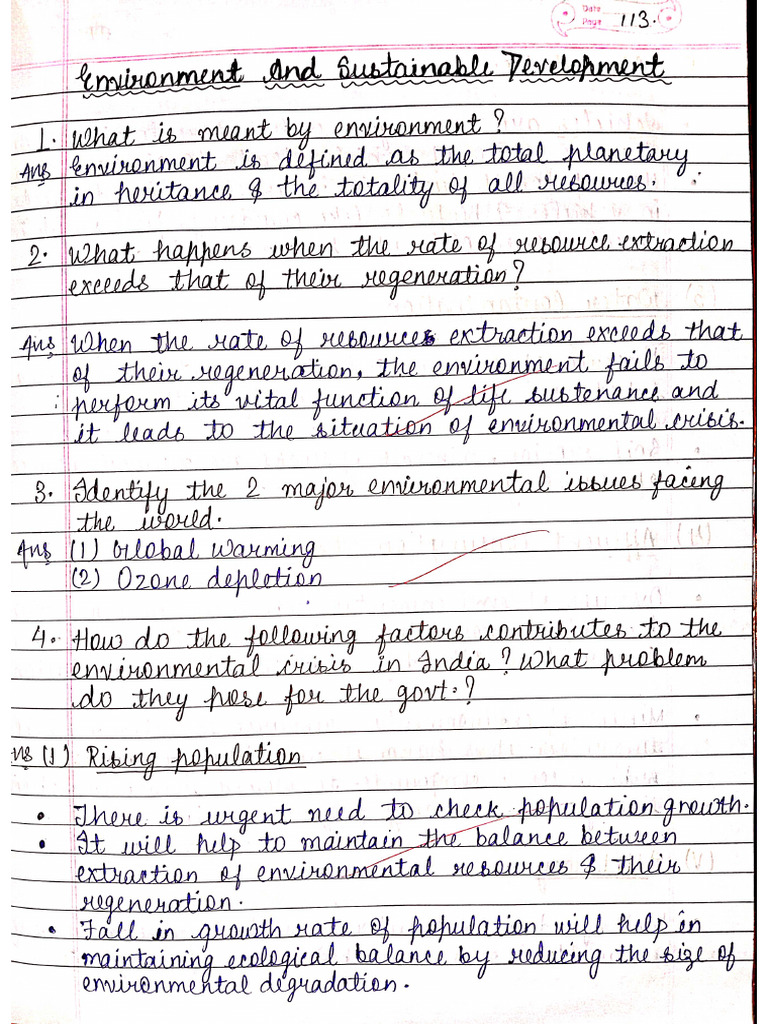 Date
Page 113.
Environment And Sustainable Development
1. What is meant by environment?
Ans Environment is defined as the total planetary
in heritance & the totality of all resources.
2. What happens when the rate of resource extraction
exceeds that of their regeneration?
Ans When the rate of resources extraction exceeds that
of their regeneration, the environment fails to
perform its vital function of life sustenance and
it leads to the situation of environmental crisis.
3. Identify the 2 major environmental issues facing
the world.
Ans (1) Global warming
(2) Ozone depletion
4. How do the following factors contributes to the
environmental crisis in India? What problem
do they pose for the govt.?
Ans (1) Rising population
• There is urgent need to check population growth.
• It will help to maintain the balance between
extraction of environmental resources & their
regeneration.
• Fall in growth rate of population will help in
maintaining ecological balance by reducing the size of
environmental degradation.